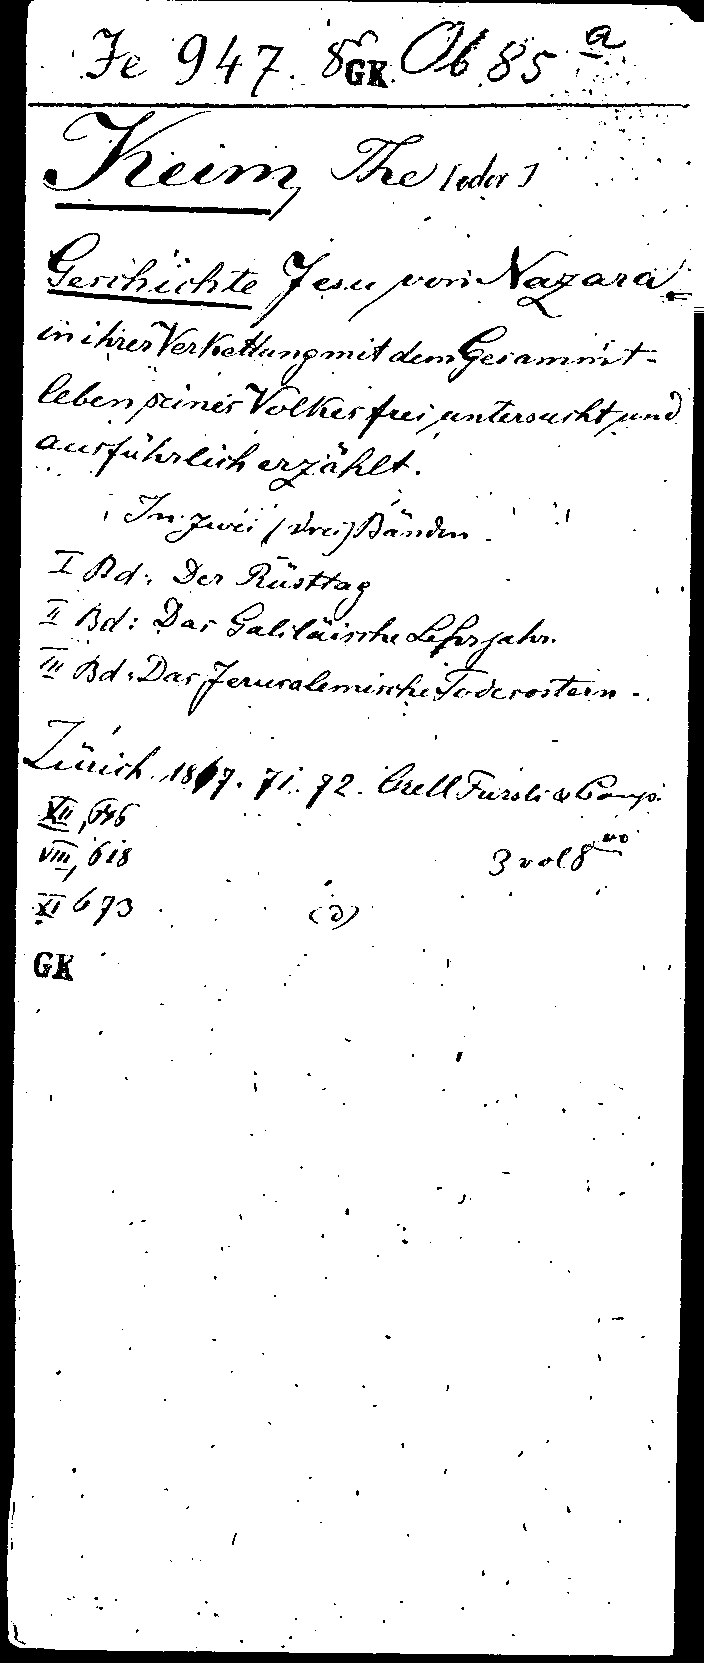 Je 947. 8º GK Ob 85 a
Keim, The[odor]
Geschichte Jesu von Nazara
in ihrer Verkettung mit dem Gesammt-
leben seines Volkes frei untersucht und
ausführlich erzählt.
In zwei (drei) Bänden.
I Bd: Der Rüsttag
II Bd: Das Galiläische Lehrjahr.
III Bd: Das Jerusalemische Todesostern.
Zürich. 1867. 71. 72. Orell Füssli & Comp.
XII, 646
VIII, 618 3 vol 8vo
XI 673 (d)
GK